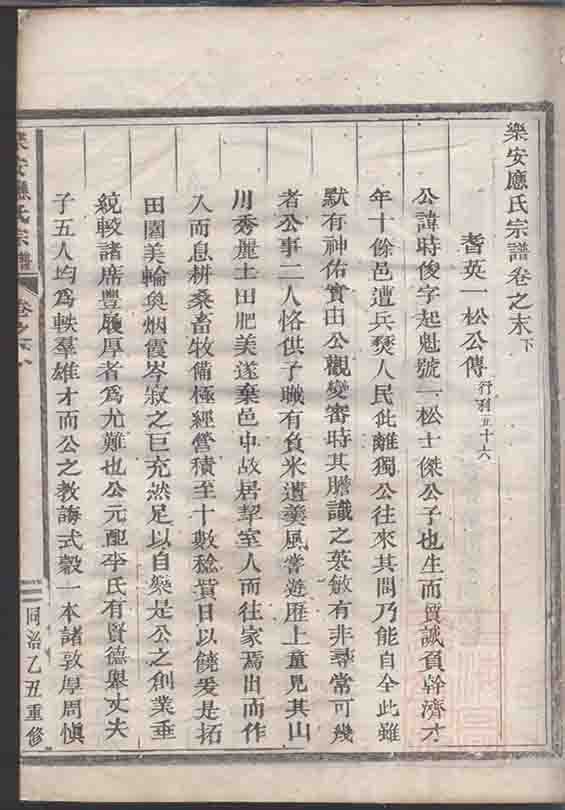 樂安應氏宗譜卷之末下
耆英一松公傳行列五十六
公諱時俊字起魁號一松士傑公子也生而質誠負幹濟才
年十餘邑遭兵燹人民仳離獨公往來其間乃能自全此雖
默有神佑實由公觀變審時其膽識之英敏有非尋常可幾
者公事二人恪供子職有負米遺羹風嘗遊歷上童見其山
川秀麗土田肥美遂棄邑中故居挈室人而往家焉出而作
入而息耕桑畜牧備極經營積至十數稔貲日以饒爰是拓
田園美輪奐烟霞岑寂之巨充然足以自樂是公之創業垂
統較諸席豐履厚者爲尤難也公元配李氏有賢德舉丈夫
子五人均爲軼羣雄才而公之教誨式穀一本諸敦厚周愼
樂安應氏宗譜
卷之末下
同治乙丑重修